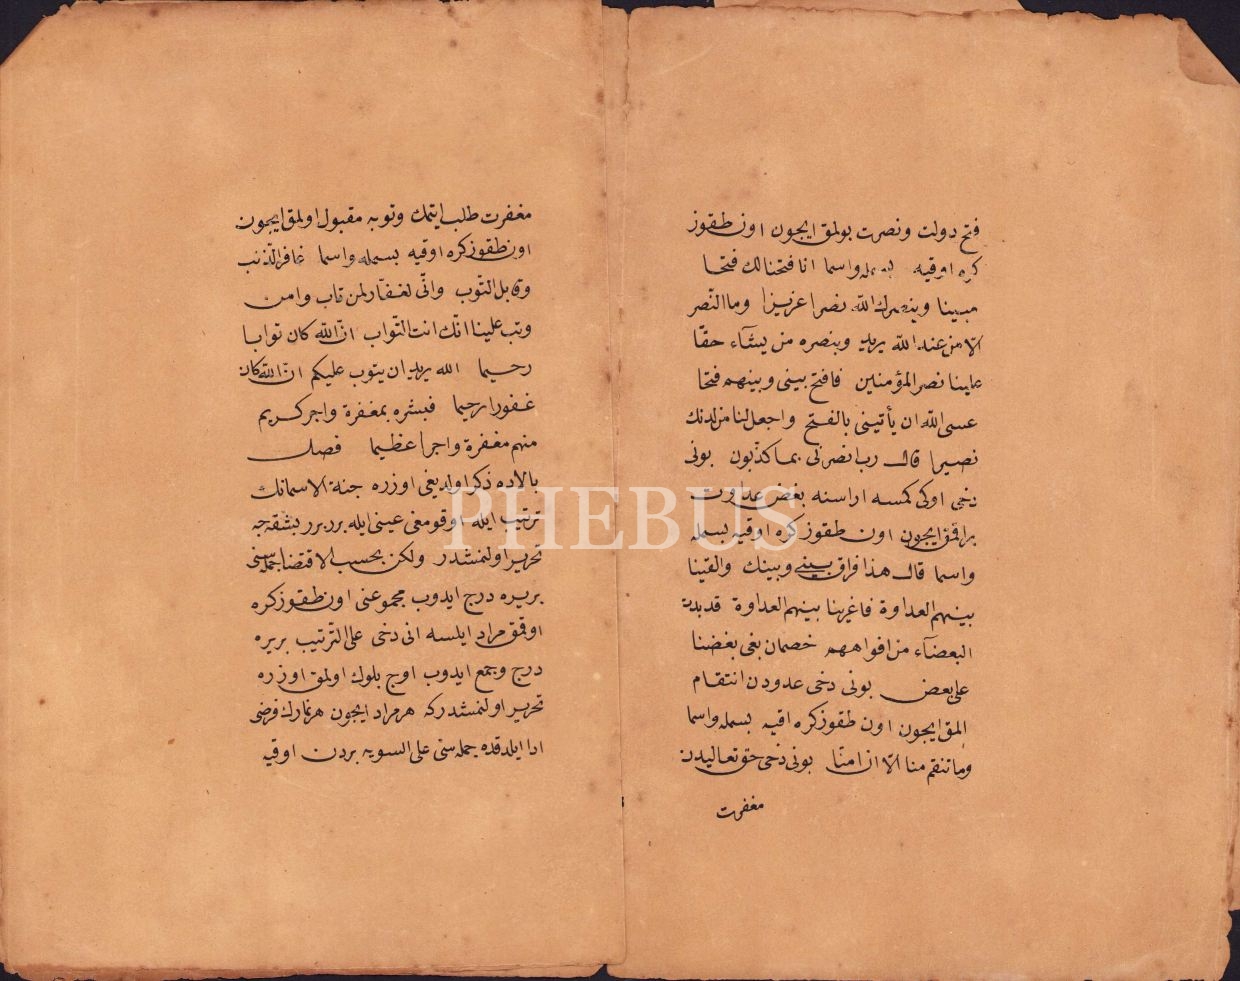 فتح دولت ونصرت بولمق ايچون اون طقوز
كره اوقيه بسمله واسما انا فتحنا لك فتحا
مبينا وينصرك الله نصرا عزيزا وما النّصر
الّا من عند الله يريد وبنصره من يشآء حقّا
علينا نصر المؤمنين فافتح بينى وبينهم فتحا
عسى الله ان يأتينى بالفتح واجعل لنا من لدنك
نصيرا قال رب انصرنى بما كذّبون بونى
دخى اوكى كمسه اراسنه بغض عداوت
براقمق ايچون اون طقوز كره اوقيه بسمله
واسما قال هذا فراق بينى وبينك والقينا
بينهم العداوة فاغرينا بينهم العداوة قد بدت
البغضآء من افواههم خصمان بغى بعضنا
على بعض بونى دخى عدودن انتقام
المق ايچون اون طقوز كره اقيه بسمله واسما
وما تنقم منا الّا ان امنّا بونى دخى حق تعاليدن
مغفرت
مغفرت طلب ايتمك وتوبه مقبول اولمق ايچون
اون طقوز كره اوقيه بسمله واسما غافر الذّنب
وقابل التّوب وانّى لغفّار لمن تاب وامن
وتب علينا انّك انت التّواب انّ الله كان توابا
رحيما الله يريد ان يتوب عليكم انّ الله كان
غفورا رحيما فبشره بمغفرة واجر كريم
منهم مغفرة واجرا عظيما فصل
بالاده ذكر اولديغى اوزره جنة الاسمانك
ترتيب ايله اوقومغى عينى ايله برر برر بشقه جه
تحرير اولنمشدر ولكن بحسب الاقتضا جمله سنى
بربره درج ايدوب مجموعنى اون طقوز كره
اوقمق مراد ايلسه انى دخى على التّرتيب بربره
درج وجمع ايدوب اوج بلوك اولمق اوزره
تحرير اولنمشدركه هر مراد ايچون هر نمازك فرضى
ادا ايلدقده جمله سنى على السويه بردن اوقيه
PHEBUS